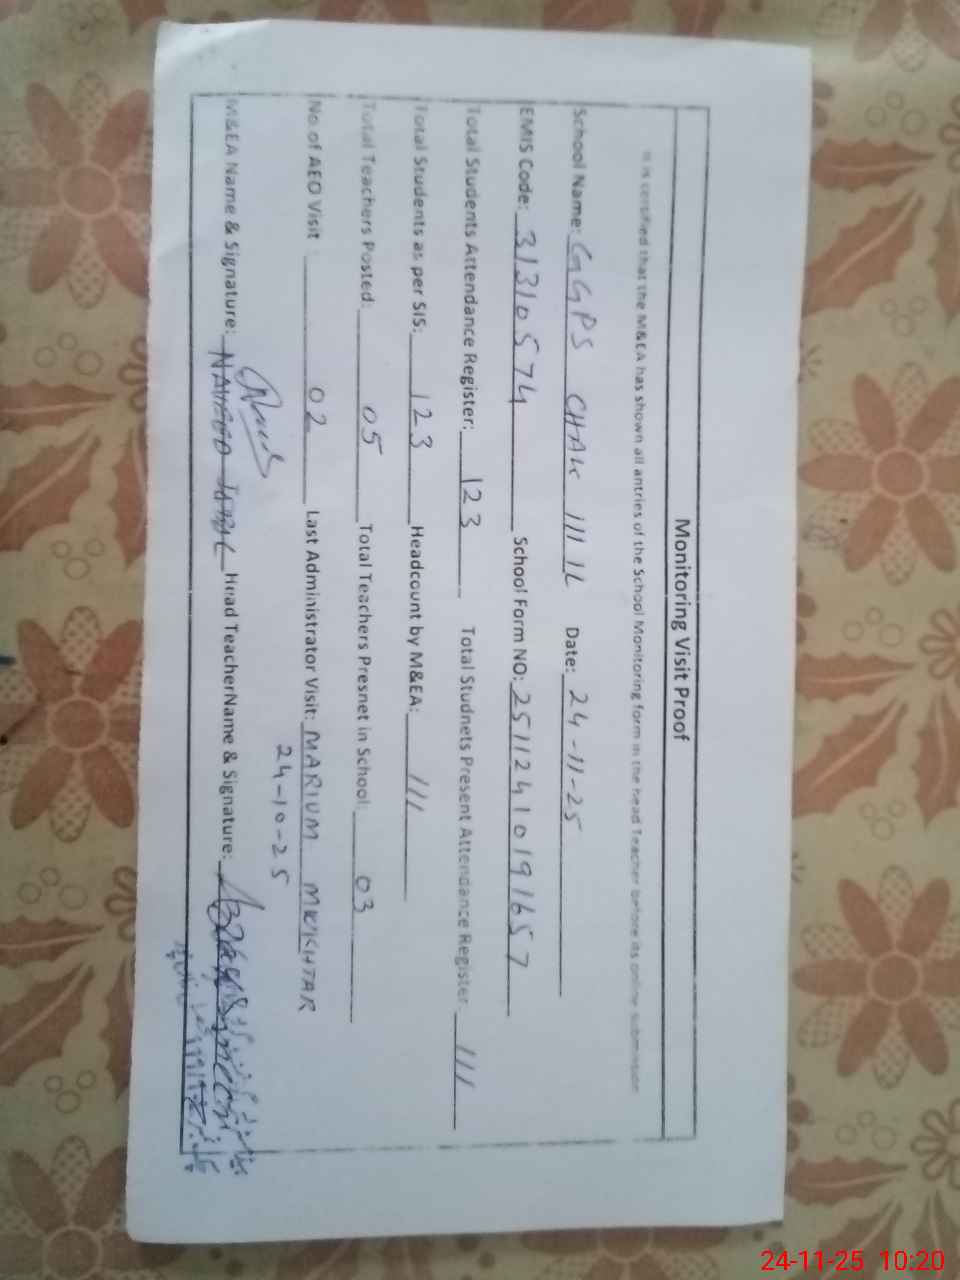 Monitoring Visit Proof
It is certified that the M&EA has shown all antries of the School Monitoring form to the head Teacher before its online submission
School Name: GGPS CHAK 111 1L Date: 24-11-25
EMIS Code: 31310574 School Form NO: 25112410191657
Total Students Attendance Register: 123 Total Studnets Present Attendance Register 111
Total Students as per SIS: 123 Headcount by M&EA: 111
Total Teachers Posted: 05 Total Teachers Presnet in School: 03
No. of AEO Visit : 02 Last Administrator Visit: MARIUM MUKHTAR
24-10-25
M&EA Name & Signature: Head TeacherName & Signature:
24-11-25 10:20